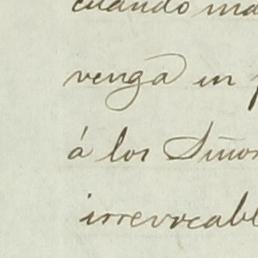 cuando ma
venga en p
á los Señor
irrevocabl